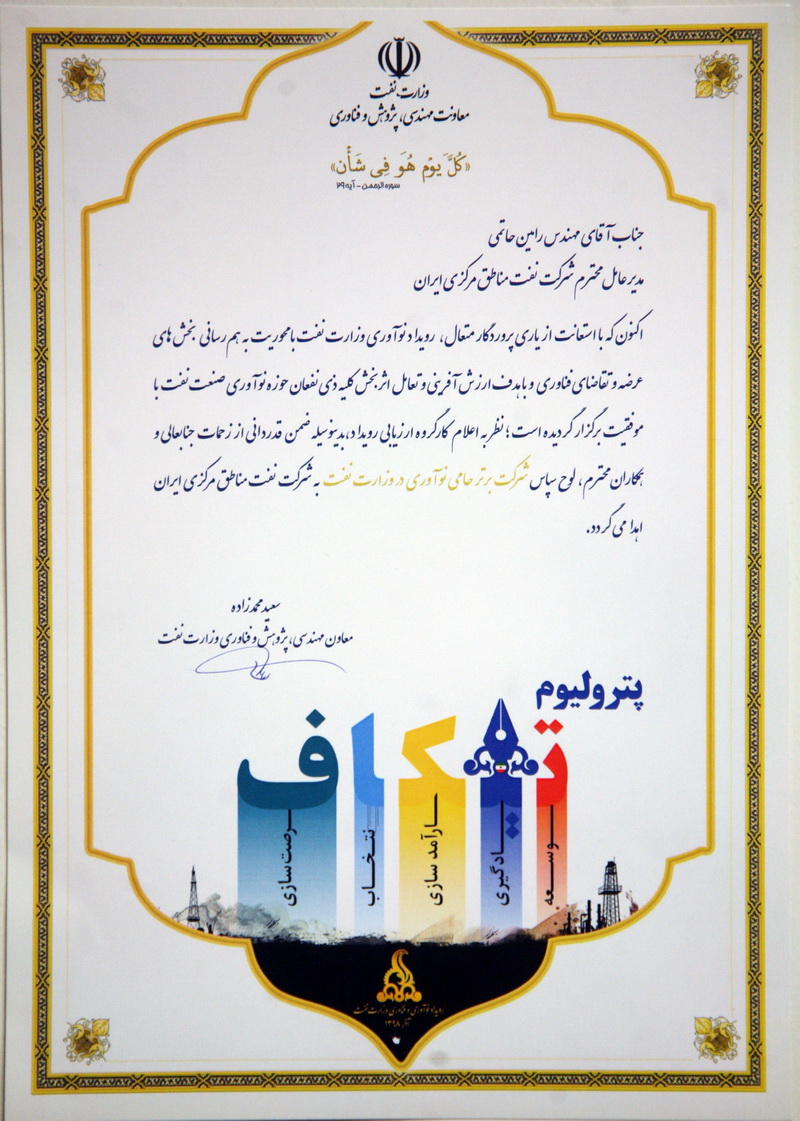 وزارت نفت
معاونت مهندسی، پژوهش و فناوری
«كُلَّ يَوْم هُوَ فِي شَأْن»
سوره الرحمن - آیه ۲۹
جناب آقای مهندس رامین حاتمی
مدیرعامل محترم شرکت نفت مناطق مرکزی ایران
اکنون که با استعانت از یاری پروردگار متعال، رویداد نوآوری وزارت نفت با محوریت به هم رسانی بخش های
عرضه و تقاضای فناوری و با هدف ارزش آفرینی و تعامل اثربخش کلیه ذی نفعان حوزه نوآوری صنعت نفت با
موفقیت برگزار گردیده است؛ نظر به اعلام کارگروه ارزیابی رویداد، بدینوسیله ضمن قدردانی از زحمات جنابعالی و
همکاران محترم، لوح سپاس شرکت برتر حامی نوآوری در وزارت نفت به شرکت نفت مناطق مرکزی ایران
اهدا می گردد.
سعید محمدزاده
معاون مهندسی، پژوهش و فناوری وزارت نفت
پترولیوم
تیکاف
توسعه
یادگیری
کارآمد سازی
انتخاب
فرصت سازی
رویداد نوآوری و فناوری وزارت نفت
آذر ۱۳۹۸